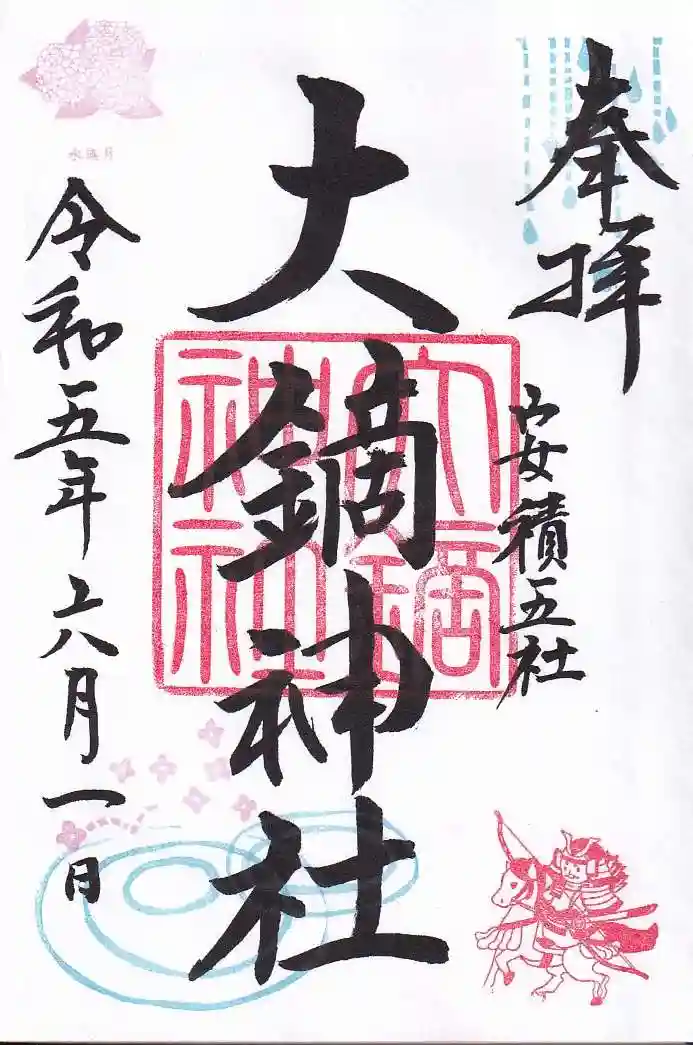 奉拝
安積五社
大鏑神社
大鏑
神社
令和五年六月一日
水無月